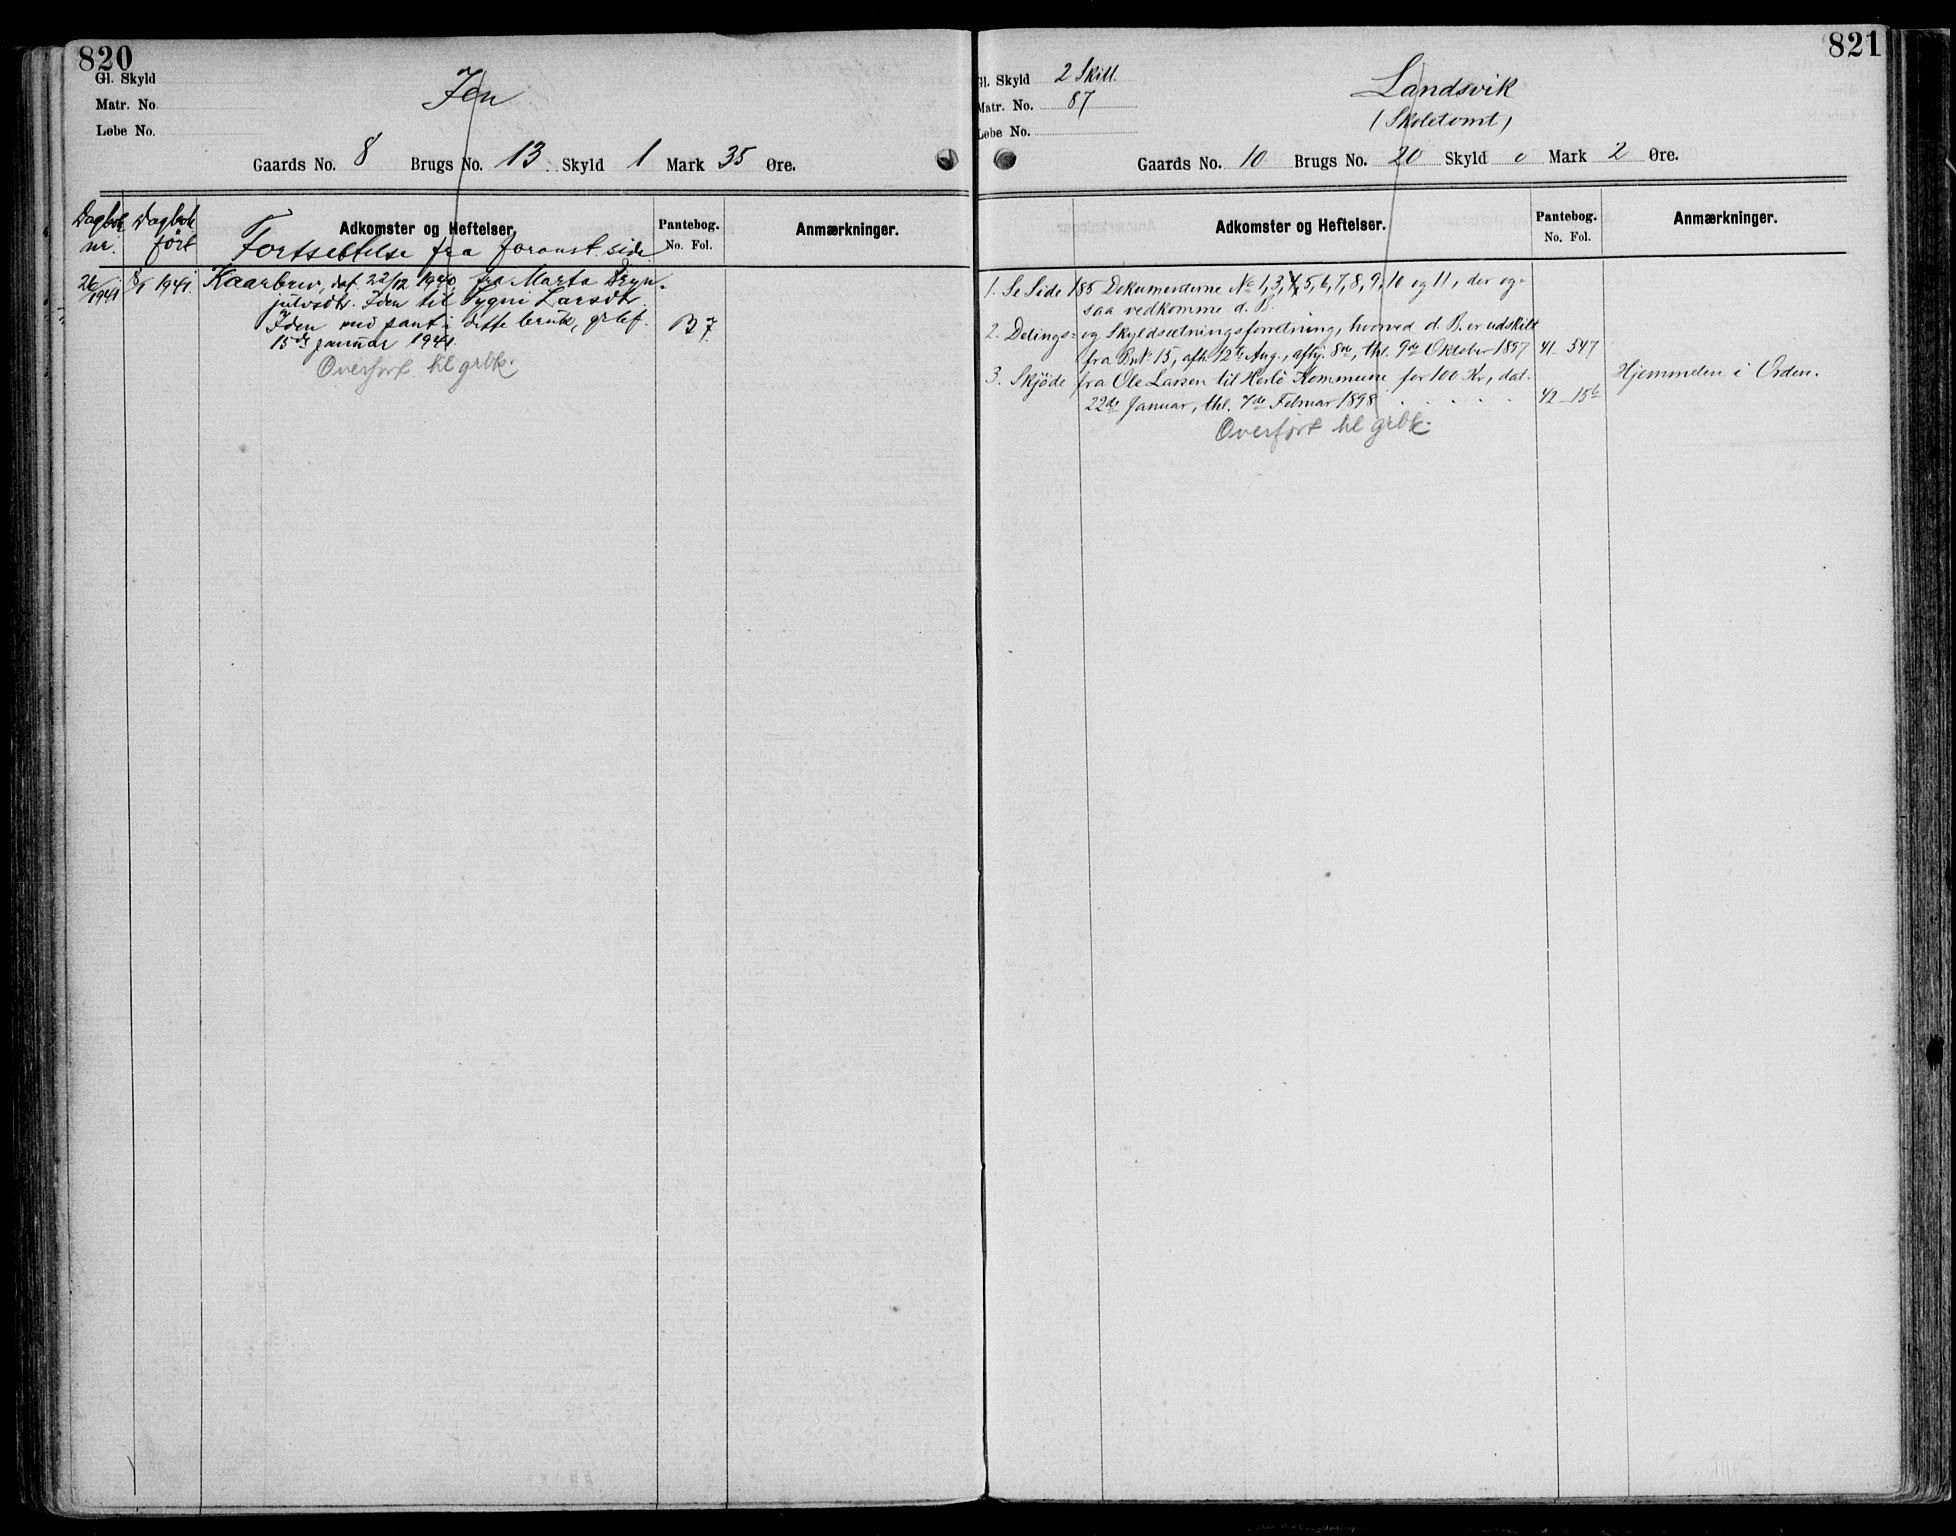 820
Gl. Skyld
Matr. No
Løbe No.
Gaards No. 8 Brugs No. 13 Skyld 1 Mark 35 Øre.
Dagbok nr.
Dagbok ført
Adkomster og Heftelser.
Pantebog.
No. Fol.
Anmærkninger.
Fortsettelse fra foranst. side
26/1941 8/1 1941. Kaarbrev, dat. 22/12 1940, fra Marta Bryn-
julvsdtr. Iden til Sygni Larsdtr.
Iden med pant i dette bruk, grbf.
15de januar 1941. B 7.
Overført til grbk.
821
Gl. Skyld 2 Skill.
Matr. No. 87
Løbe No.
Landsvik
(Skoletomt)
Gaards No. 10 Brugs No. 20 Skyld 0 Mark 2 Øre.
Adkomster og Heftelser.
Pantebog.
No. Fol.
Anmærkninger.
1. Se Side 185 Dokumenterne No 1, 3, 4, 5, 6, 7, 8, 9, 10 og 11, der og-
saa vedkomme d. B.
2. Delings- og Skyldsætningsforretning, hvorved d. B. er udskilt
fra BNo 15, afh. 12te Aug., afhj. 8de, thl. 9de Oktober 1897 41 547
3. Skjøde fra Ole Larsen til Herlø Kommune for 100 Kr, dat.
22de Januar, thl. 7de Februar 1898 . . . . . 42 15b
Hjemmelen i Orden.
Overført til grbk.